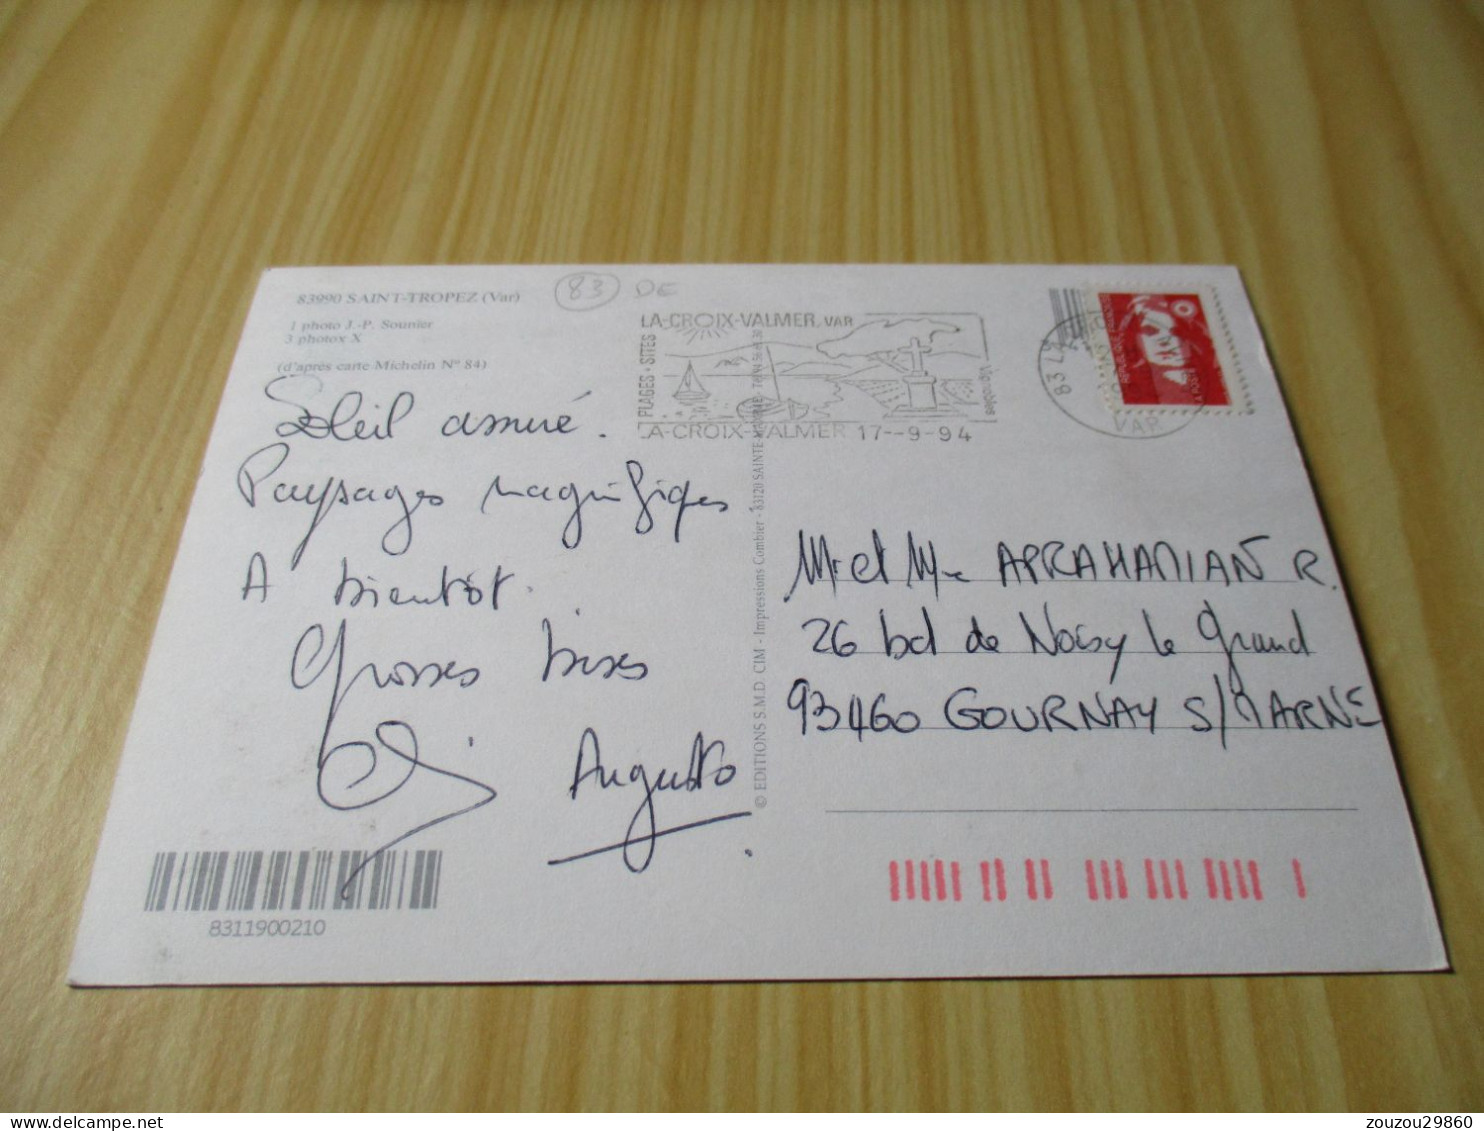 83990 SAINT-TROPEZ (Var)
1 photo J.-P. Sounier
3 photox X
(d'après carte Michelin N° 84)
83 DE
LA-CROIX-VALMER, VAR
PLAGES - SITES
Vignobles
LA-CROIX-VALMER 17--9-94
VAR
REPUBLIQUE FRANÇAISE
LA POSTE
Soleil assuré.
Paysages magnifiques
A bientôt.
Grosses bises
Augusto
© EDITIONS S.M.D. CIM - Impressions Combier - 83120 SAINTE-MAXIME
Mr et Mme APRAHAMIAN R.
26 bd de Noisy le Grand
93460 GOURNAY S/MARNE
8311900210
zouzou29860